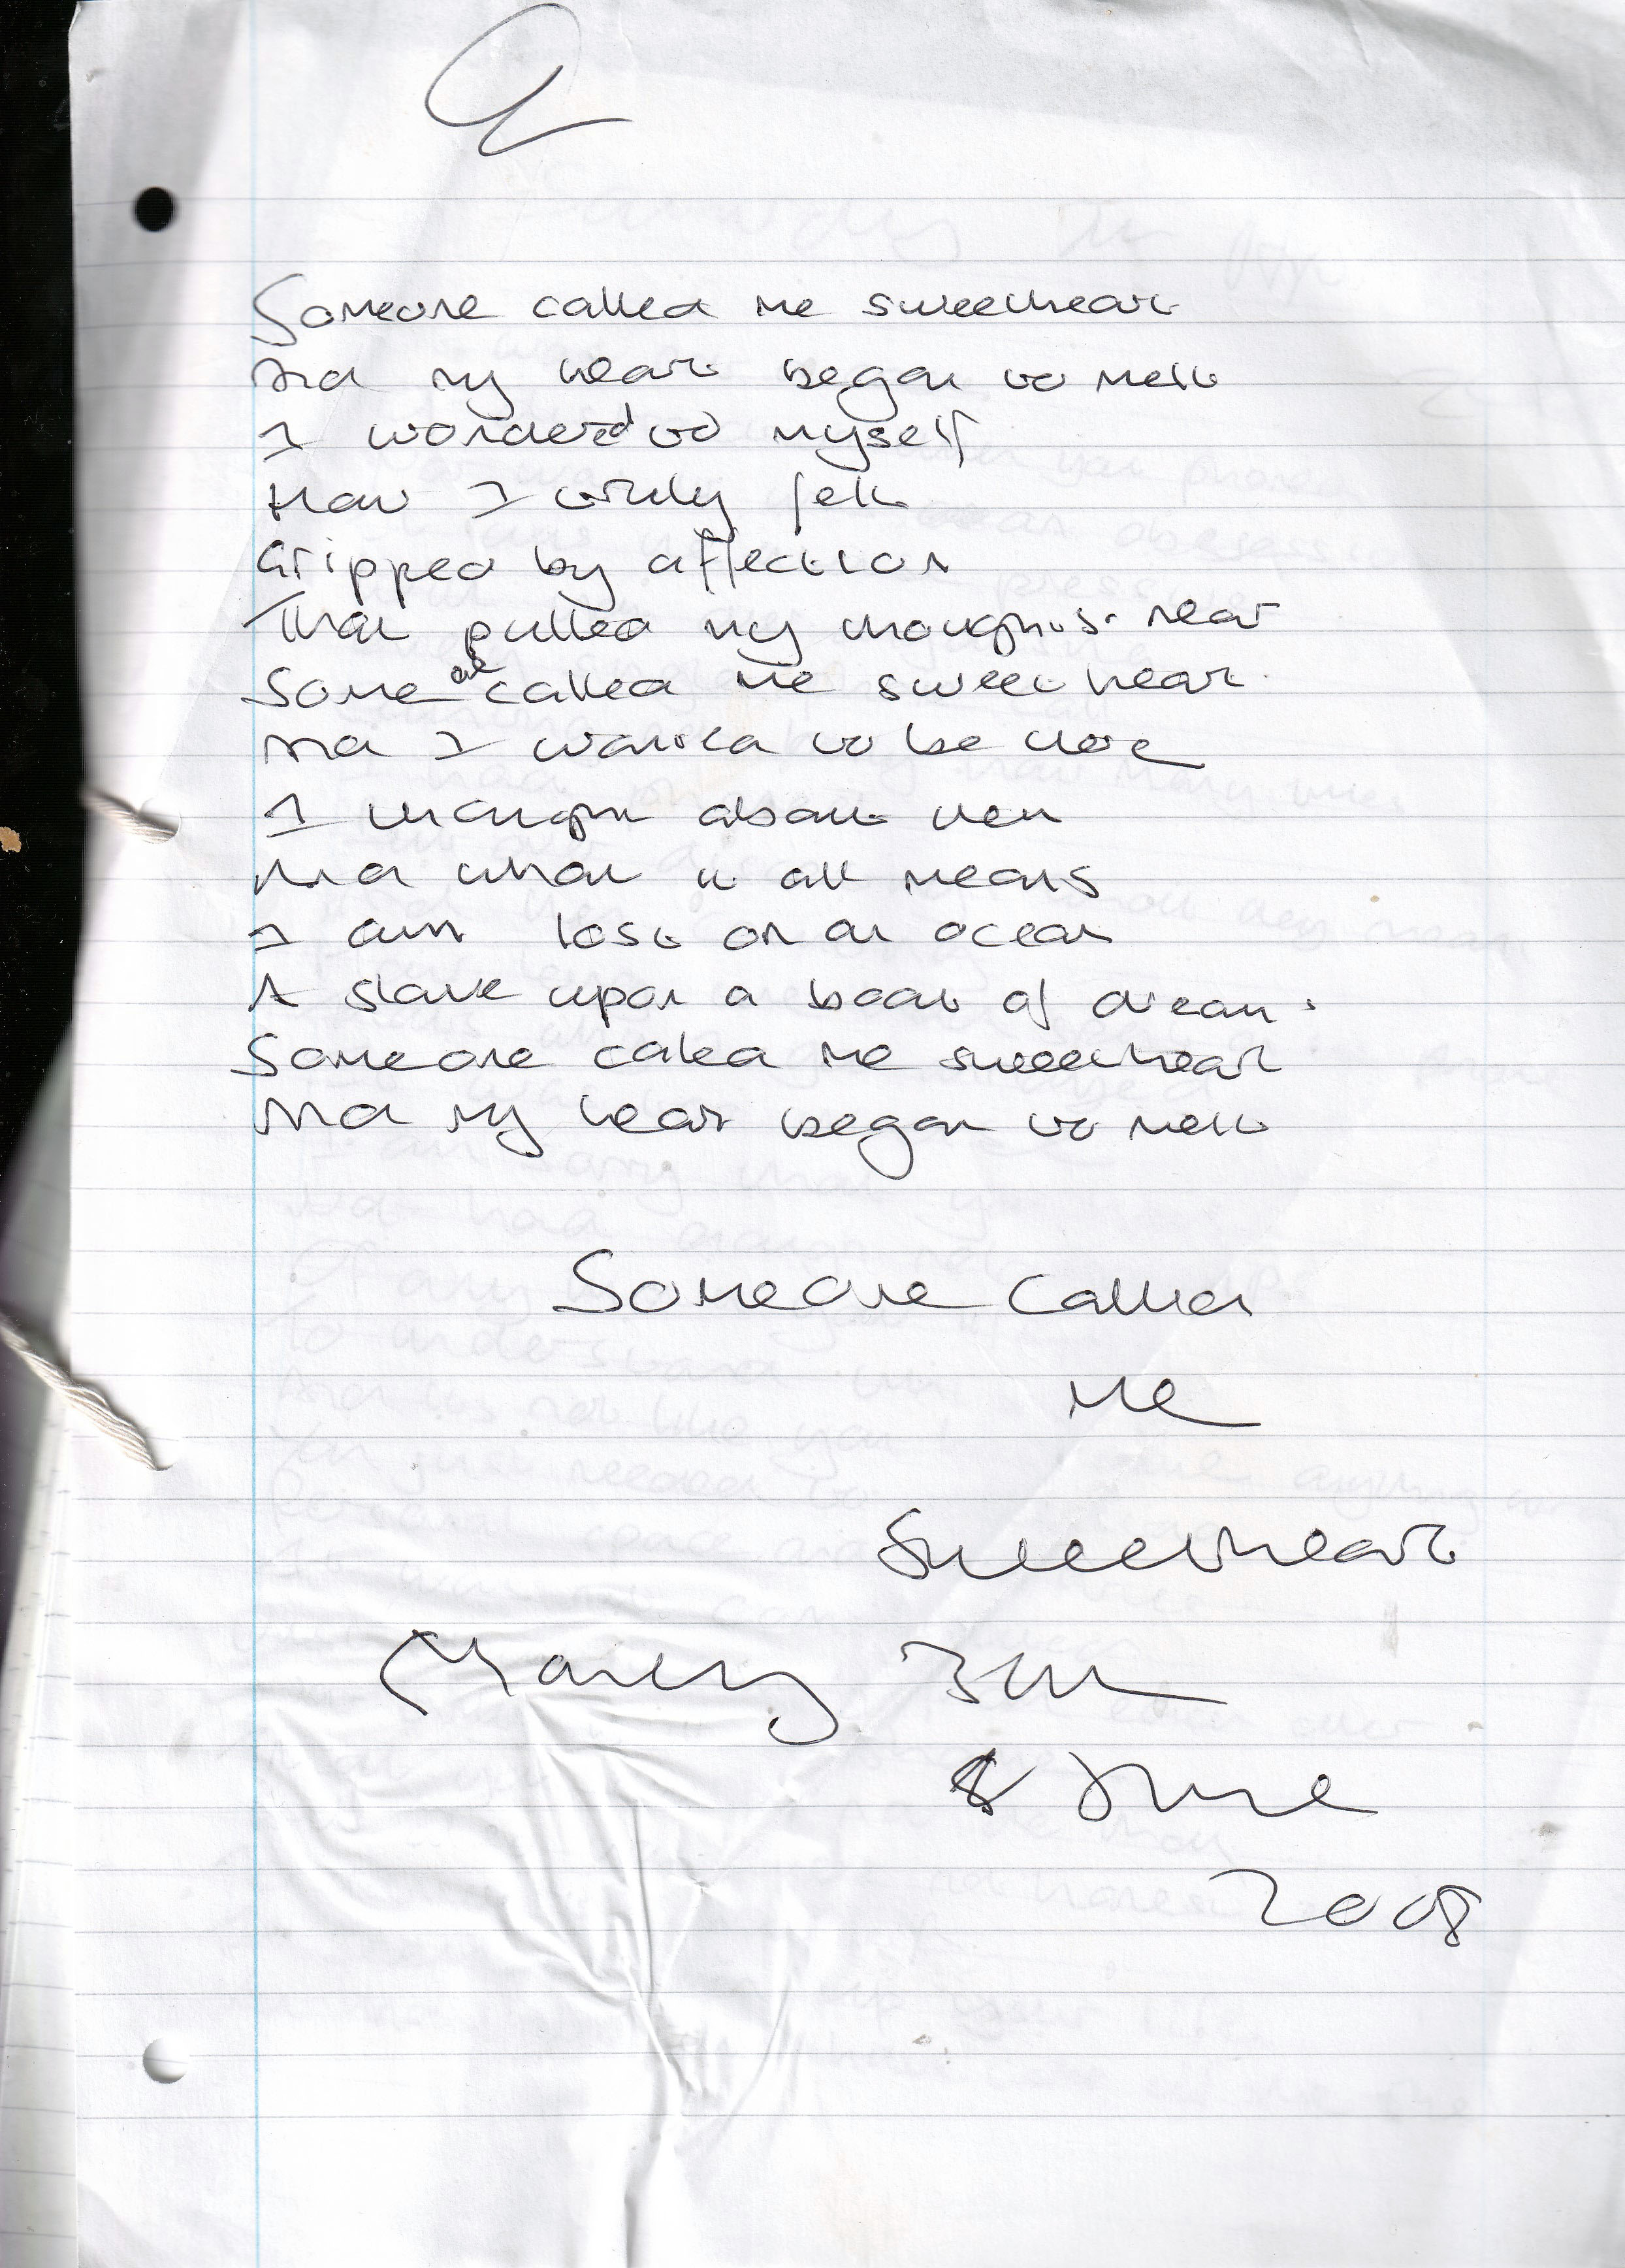 Someone called me sweetheart
And my heart began to melt
I wondered to myself
How I truly felt
Gripped by affection
That pulled my thoughts near
Someone called me sweetheart
And I wanted to be there
I thought about then
And what it all means
I am lost on an ocean
A slave upon a boat of dreams
Someone called me sweetheart
And my heart began to melt
Someone Called
Me
Sweetheart
8 June
2008